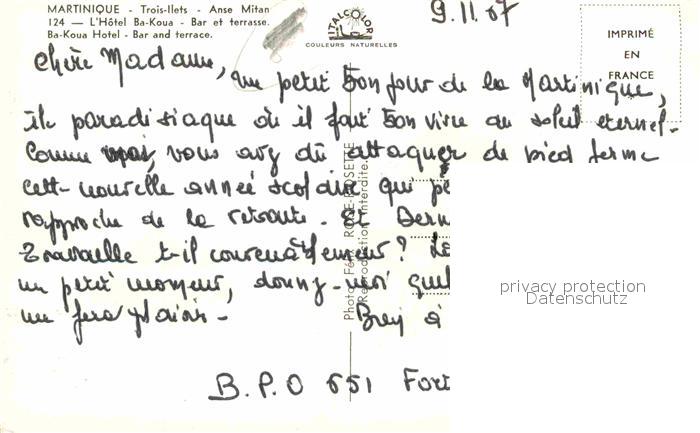 MARTINIQUE - Trois-Ilets - Anse Mitan
124 — L'Hôtel Ba-Koua - Bar et terrasse.
Ba-Koua Hotel - Bar and terrace.
ITALCOLOR
COULEURS NATURELLES
9.11.67
IMPRIMÉ
EN
FRANCE
Chère Madame, un petit bonjour de la Martinique,
île paradisiaque où il fait bon vivre au soleil éternel.
Comme moi, vous avez dû attaquer de pied ferme
cette nouvelle année scolaire qui
rapproche de la retraite. Et
travaille t-il courageusement?
un petit moment, donnez-moi
me fera plaisir -
à
B.P.O 651 Fort
Photo Félix ROSE-ROSETTE
Reproduction interdite.
privacy protection
Datenschutz